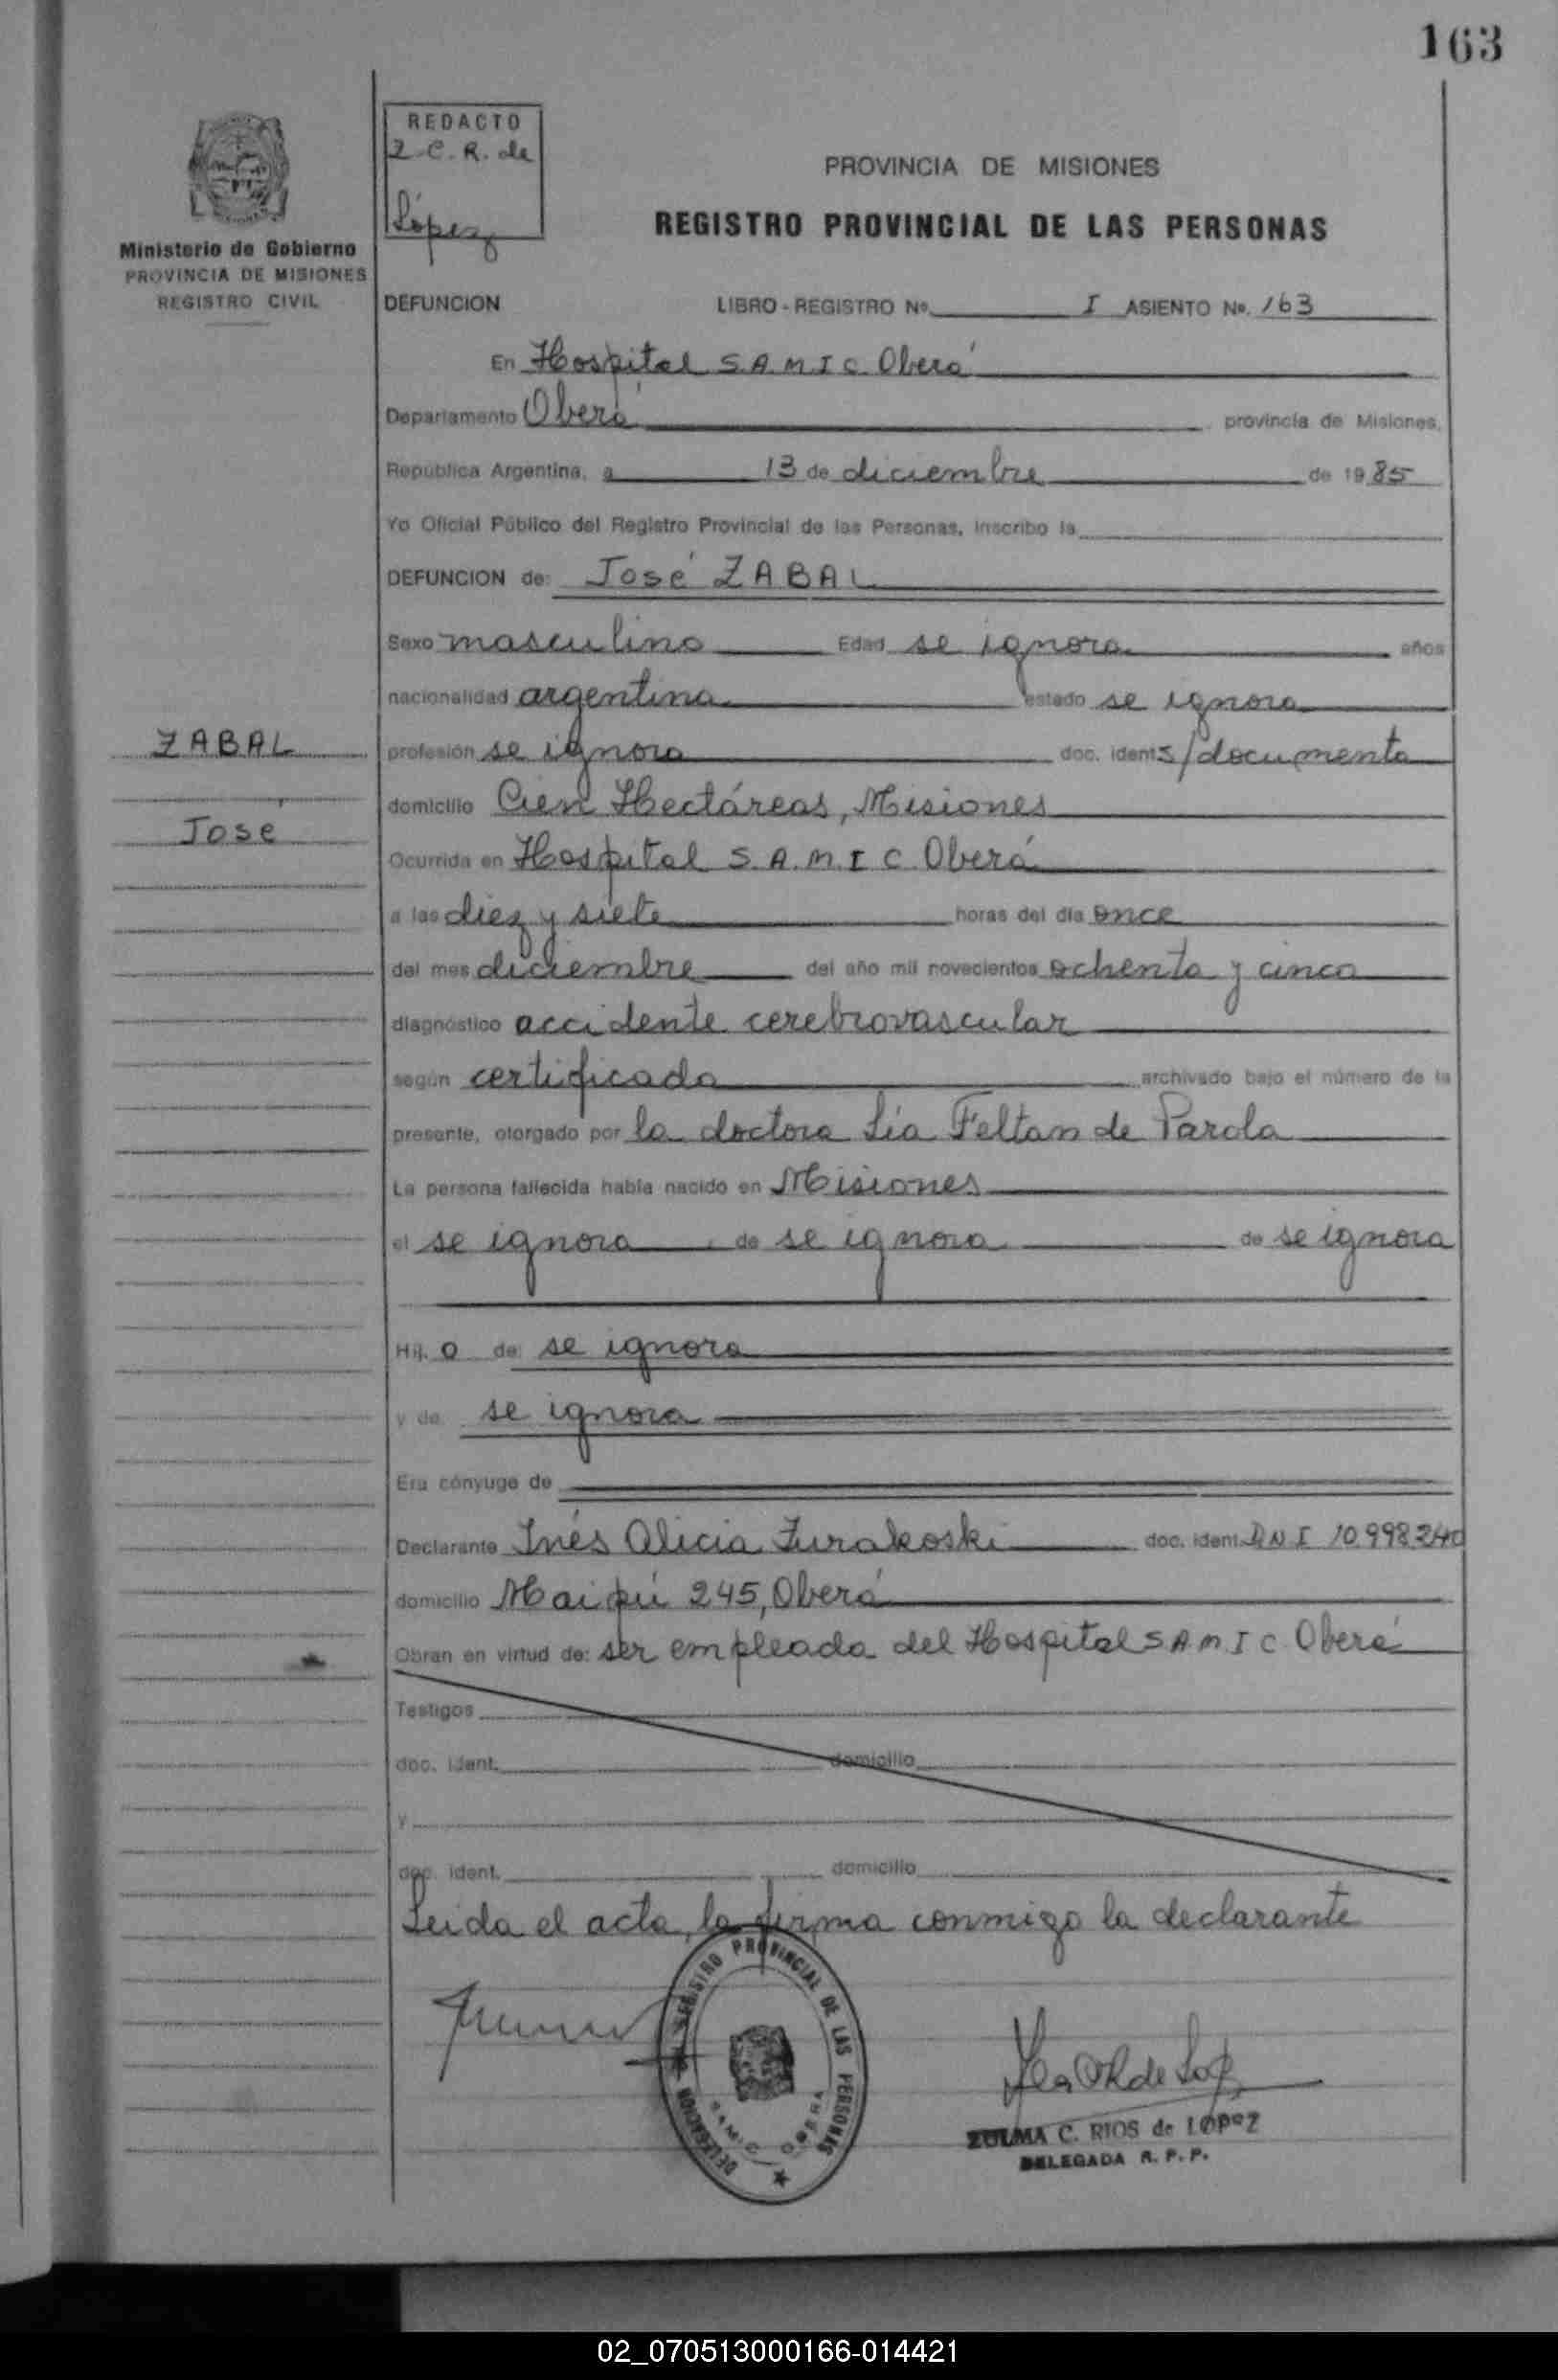 163
REDACTO
Z.C.R. de
López
Ministerio de Gobierno
PROVINCIA DE MISIONES
REGISTRO CIVIL
PROVINCIA DE MISIONES
REGISTRO PROVINCIAL DE LAS PERSONAS
DEFUNCION LIBRO - REGISTRO Nº I ASIENTO Nº. 163
En Hospital S.A.M.I.C. Oberá
Departamento Oberá provincia de Misiones,
República Argentina, a 13 de diciembre de 1985
Yo Oficial Público del Registro Provincial de las Personas, inscribo la
DEFUNCION de: José ZABAL
Sexo masculino Edad se ignora años
nacionalidad argentina estado se ignora
ZABAL
José
profesión se ignora doc. ident. s/documento
domicilio Cien Hectáreas, Misiones
Ocurrida en Hospital S.A.M.I.C Oberá
a las diez y siete horas del día once
del mes diciembre del año mil novecientos ochenta y cinco
diagnóstico accidente cerebrovascular
según certificado archivado bajo el número de la
presente, otorgado por la doctora Lía Feltan de Parola
La persona fallecida había nacido en Misiones
el se ignora de se ignora de se ignora
Hij. o de: se ignora
y de se ignora
Era cónyuge de
Declarante Inés Alicia Zurakoski doc. ident. DNI 10.998.240
domicilio Maipú 245, Oberá
Obran en virtud de: ser empleada del Hospital S A M I C Oberá
Testigos
doc. ident. domicilio
y
doc. ident. domicilio
Leida el acta, la firma conmigo la declarante
DELEGACION REGISTRO PROVINCIAL DE LAS PERSONAS
SAMIC OBERA
ZULMA C. RIOS de LOPEZ
DELEGADA R. P. P.
02_070513000166-014421